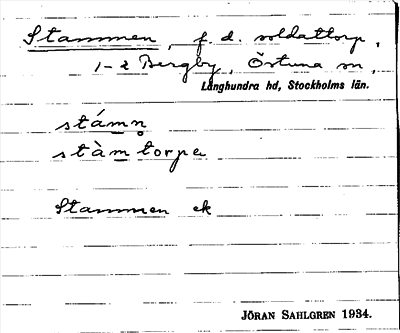 Stammen, f. d. soldattorp,
1-2 Bergby, Östuna sn,
Långhundra hd, Stockholms län.
stámn̥
stàmtorpa
Stammen ek
JÖRAN SAHLGREN 1934.